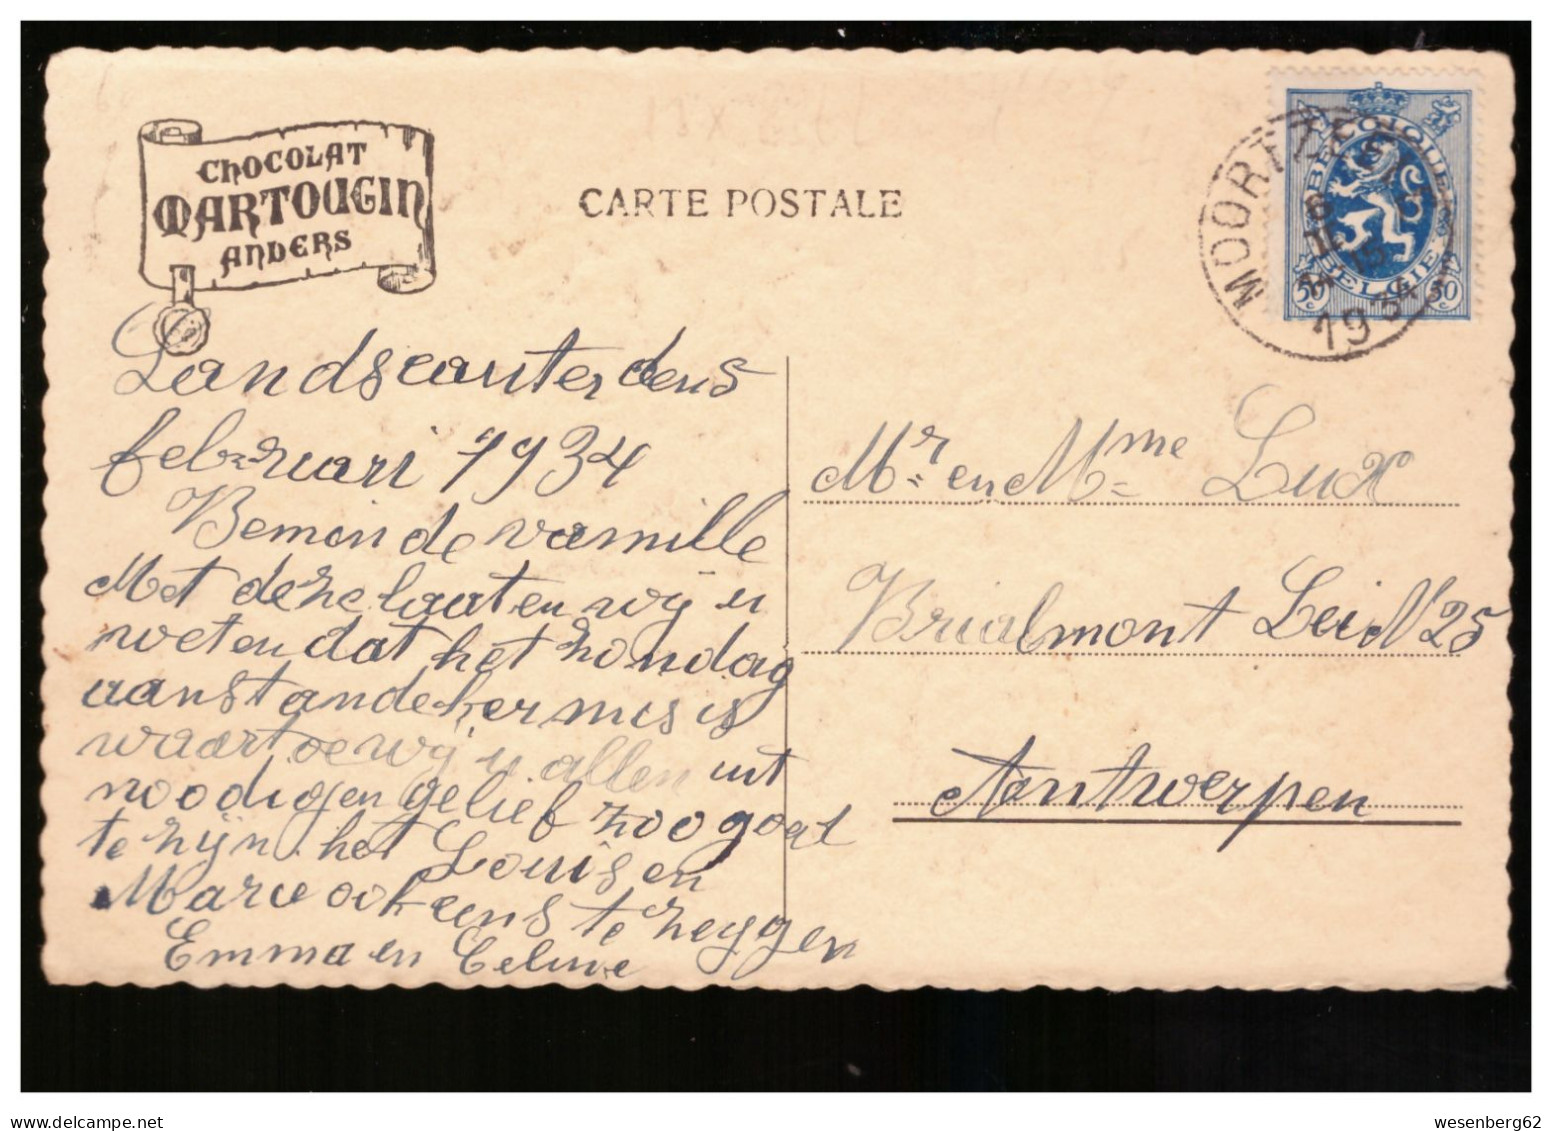 CHOCOLAT
MARTOUGIN
ANVERS
CARTE POSTALE
BELGIQUE
BELGIE
50 c 50 c
1934
Landscauter den 5
februari 1934
Bemin de vamille
Met deze laaten wij u
weten dat het zondag
aanstande kermis is
waartoe wij u allen uit
noodigen gelief zoo goed
te zijn het Louis en
Marie ook eens te zeggen
Emma en Celine
Mr en Mme Lux
Brialmont Lei N 25
Aentwerpen
wesenberg62